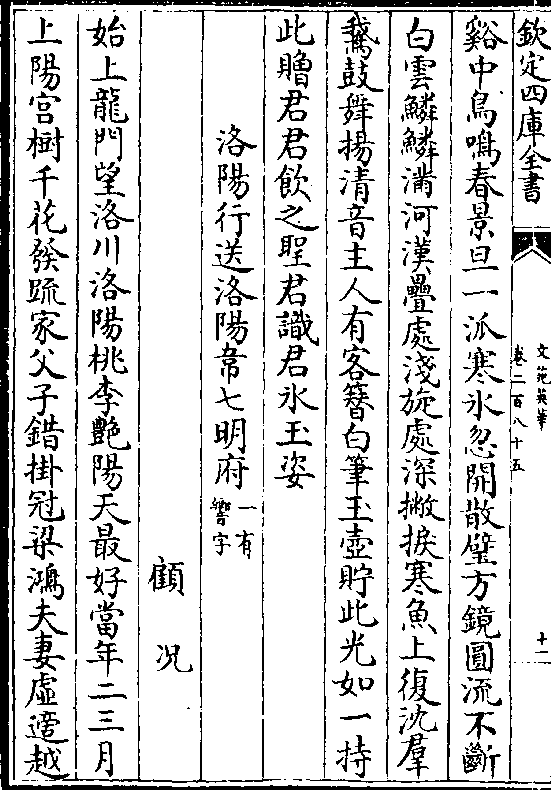 欽定四庫全書
文苑英華
卷二百八十五
十一
谿中鳥鳴春景旦一派寒氷忽開散璧方鏡圓流不斷
白雲鱗鱗滿河漢疊處淺旋處深撇捩寒魚上復沈羣
鵞鼓舞揚清音主人有客簪白筆玉壺貯此光如一持
此贈君君飲之聖君識君氷玉姿
洛陽行送洛陽韋七明府一有響字
顧况
始上龍門望洛川洛陽桃李艷陽天最好當年二三月
上陽宮樹千花發踈家父子錯掛冠梁鴻夫妻虛適越